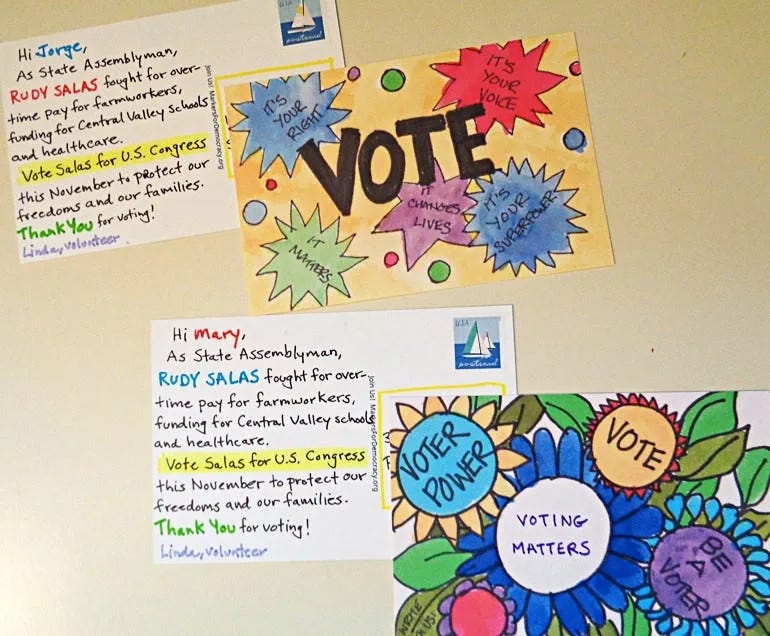 Hi Jorge,
As State Assemblyman,
RUDY SALAS fought for over-
time pay for farmworkers,
funding for Central Valley Schools
and healthcare.
Vote Salas for U.S. Congress
this November to protect our
freedoms and our families.
Thank You for voting!
Linda, volunteer
USA
postcard
Join Us! MarkersForDemocracy.org
IT'S
YOUR
RIGHT
IT'S
YOUR
VOICE
VOTE
IT
CHANGES
LIVES
IT'S
YOUR
SUPERPOWER
IT
MATTERS
Hi Mary,
As State Assemblyman,
RUDY SALAS fought for over-
time pay for farmworkers,
funding for Central Valley schools
and healthcare.
Vote Salas for U.S. Congress
this November to protect our
freedoms and our families.
Thank You for voting!
Linda, volunteer
USA
postcard
Join Us! MarkersForDemocracy.org
VOTER
POWER
VOTE
VOTING
MATTERS
BE
A
VOTER
WRITE
US!